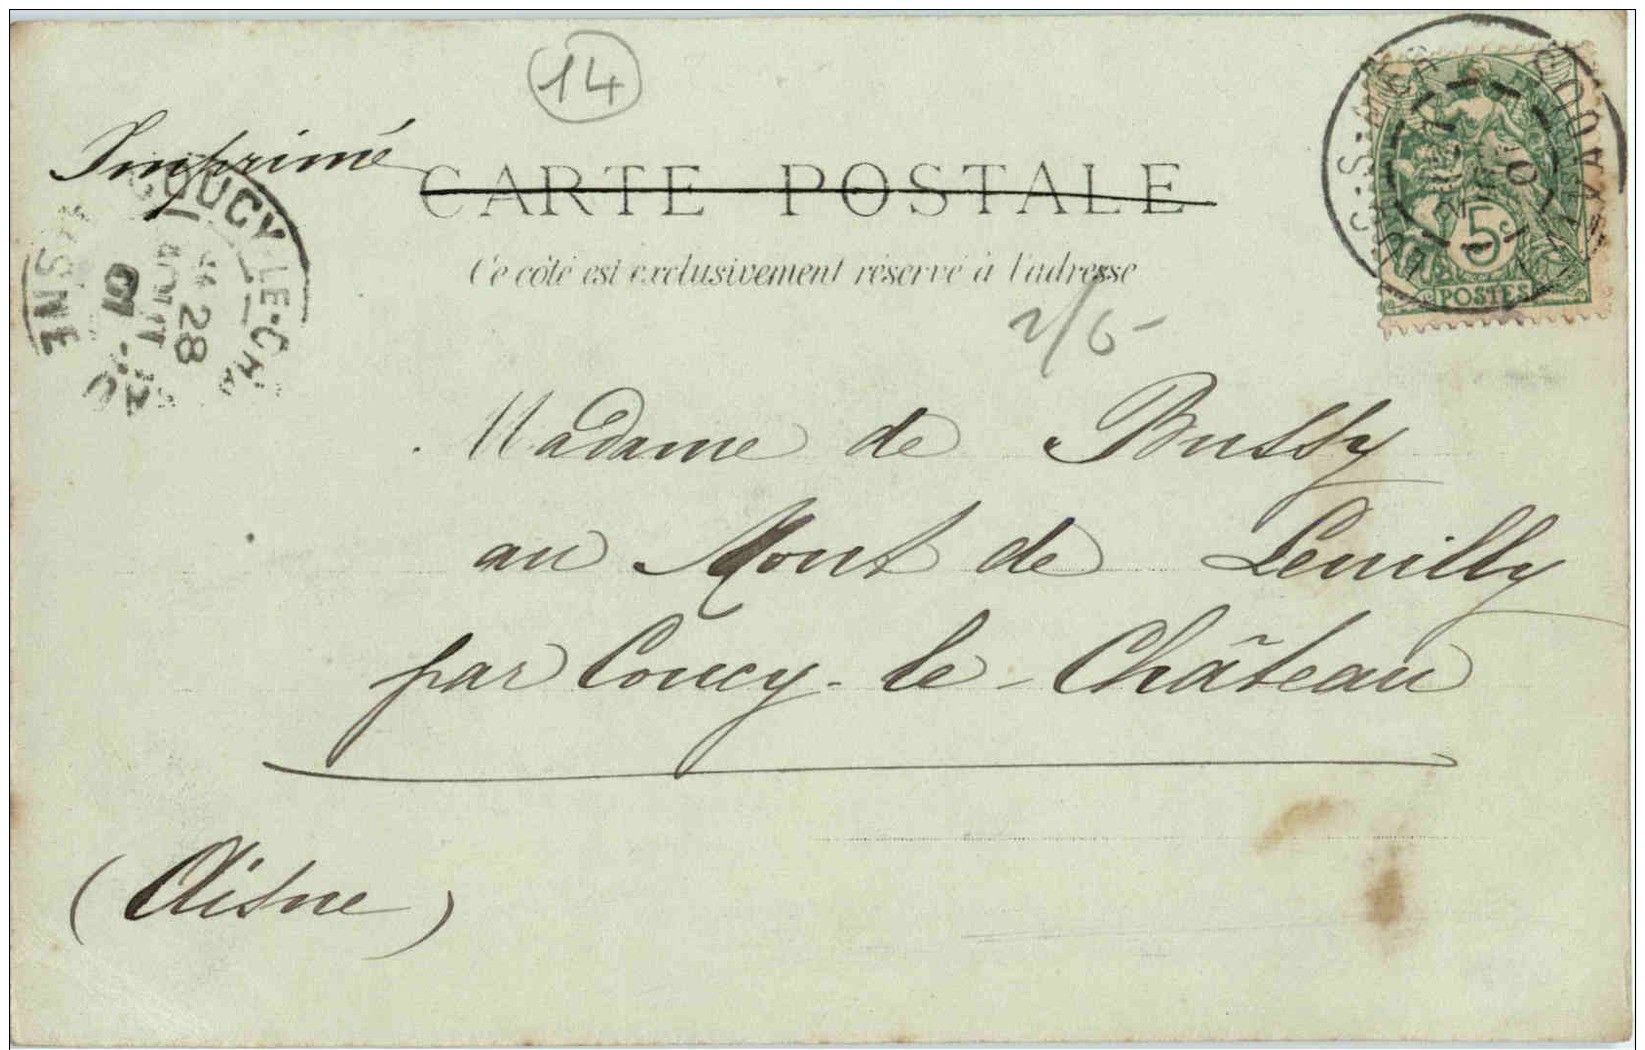 14
Imprimé
CARTE POSTALE
Ce côté est exclusivement réservé à l'adresse
5c
POSTES
COUCY-LE-CHAU
28
AOUT
01
AISNE
2/6-
Madame de Bussy
au Mont de Leuilly
par Coucy-le-Château
(Aisne)